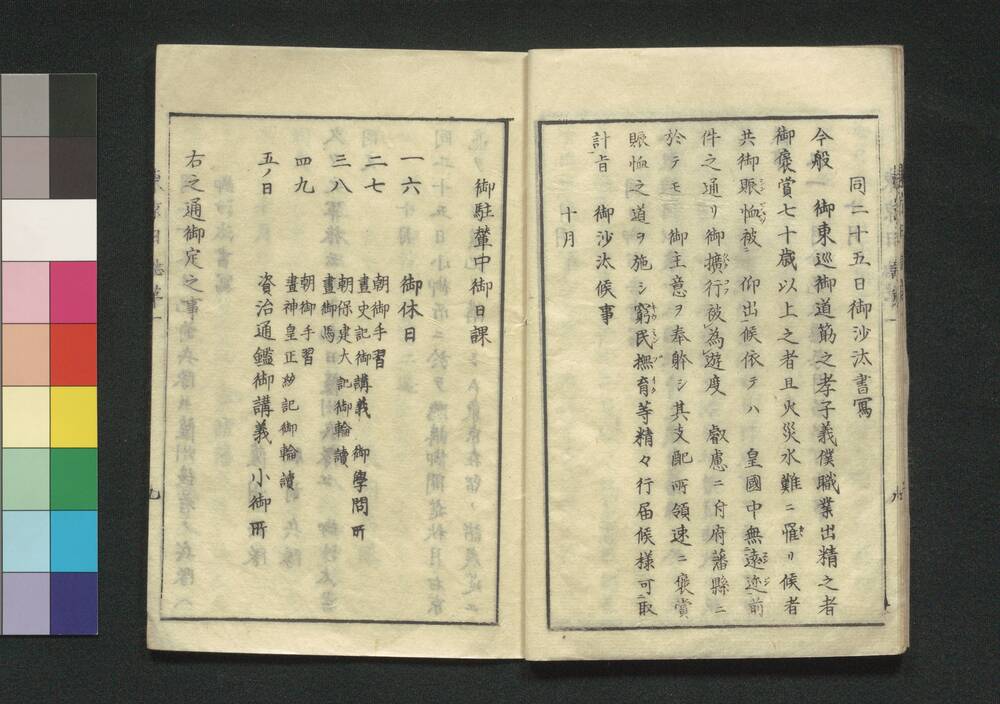 同二十五日御沙汰書寫
今般　御東巡御道筋之孝子義僕職業出精之者
御褒賞七十歳以上之者且火災水難ニ罹リ候者
共御賑恤被　仰出候依テハ　皇國中無遠迩前
件之通リ御擴行被為遊度　叡慮ニ付府藩縣ニ
於テモ　御主意ヲ奉躰シ其支配所領速ニ褒賞
賑恤之道ヲ施シ窮民撫育等精々行届候様可取
計旨　御沙汰候事
十月
御駐輦中御日課
一六　御休日
二七　朝御手習
晝史記御講義　御學問所
三八　朝保建大記御輪讀
晝御馬
四九　朝御手習
晝神皇正統記御輪讀
五ノ日　資治通鑑御講義　小御所
右之通御定之事
九